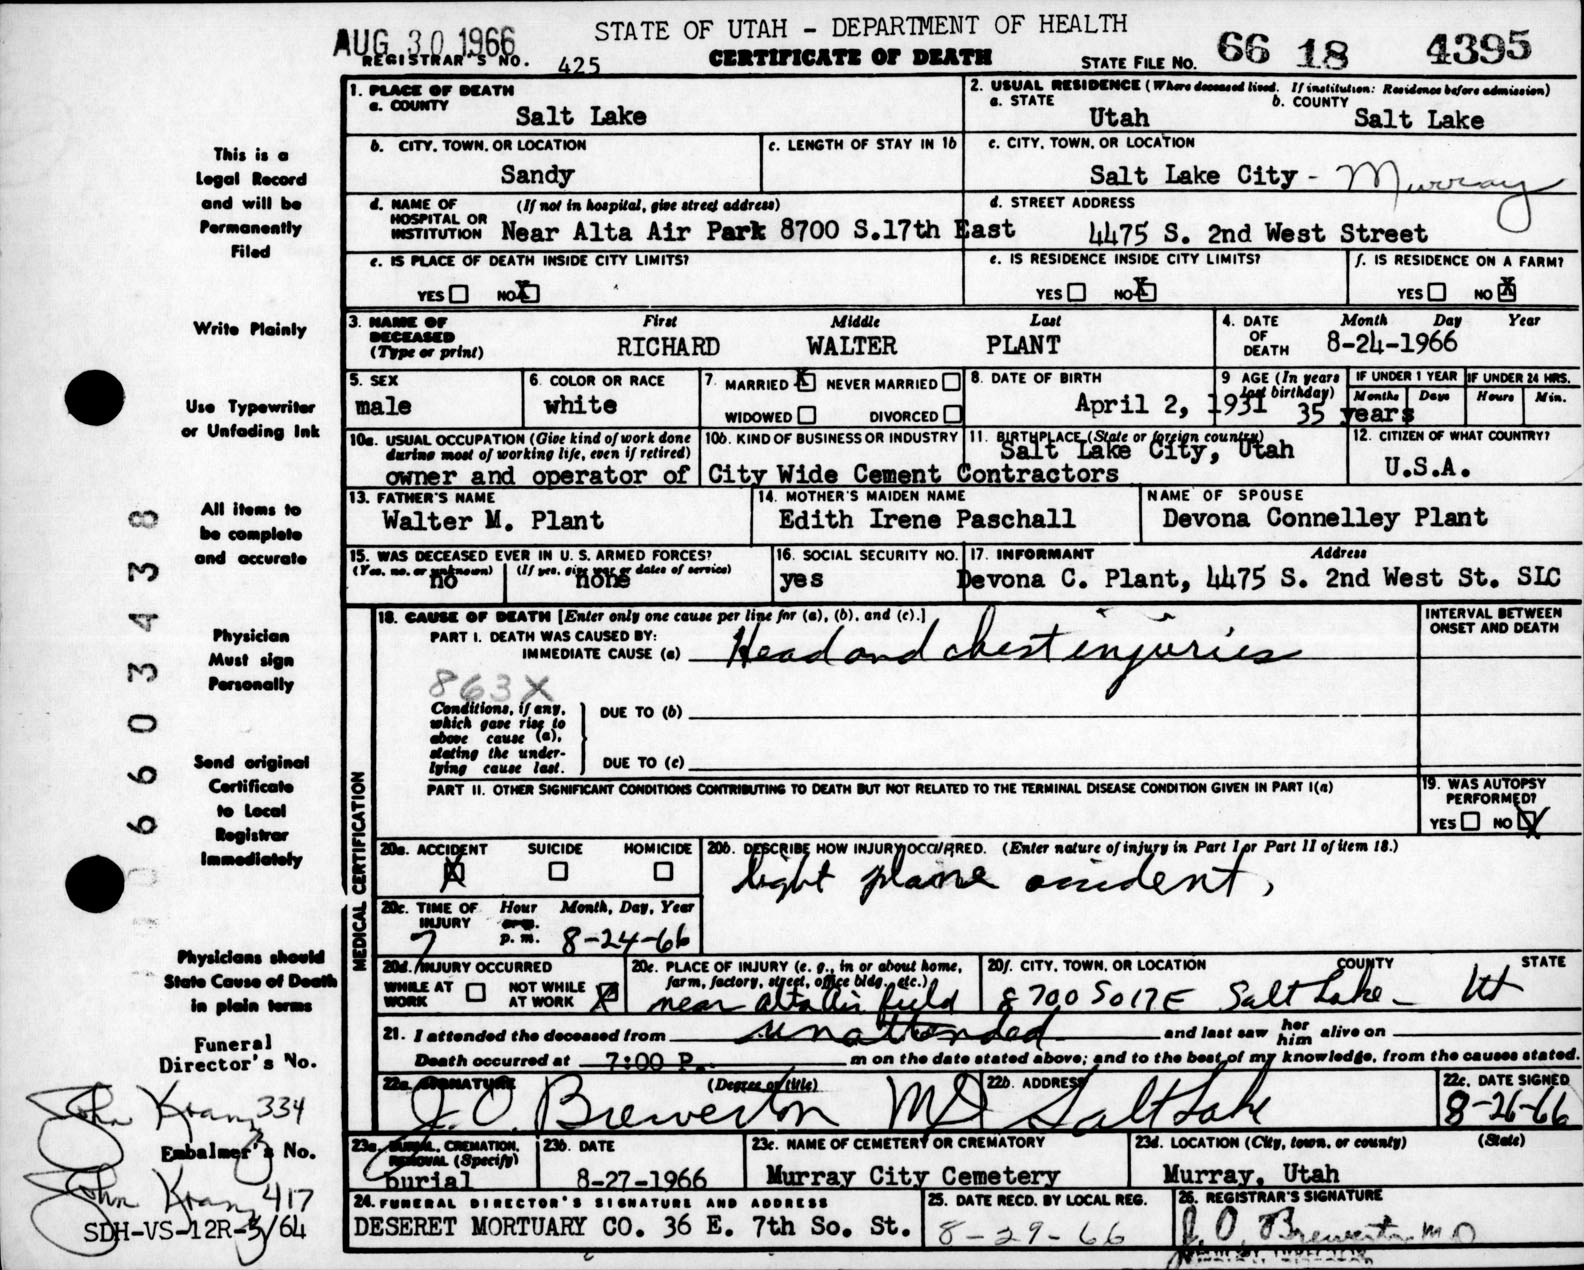 AUG 30 1966
STATE OF UTAH - DEPARTMENT OF HEALTH
REGISTRAR'S NO. 425
CERTIFICATE OF DEATH
STATE FILE NO. 66 18 4395
This is a
Legal Record
and will be
Permanently
Filed
Write Plainly
Use Typewriter
or Unfading Ink
All items to
be complete
and accurate
Physician
Must sign
Personally
Send original
Certificate
to Local
Registrar
Immediately
Physicians should
State Cause of Death
in plain terms
Funeral
Director's No.
John Kranz 334
Embalmer's No.
John Kranz 417
SDH-VS-12R-5/64
0660 3438
1. PLACE OF DEATH
a. COUNTY
Salt Lake
2. USUAL RESIDENCE (Where deceased lived. If institution: Residence before admission)
a. STATE
Utah
b. COUNTY
Salt Lake
b. CITY, TOWN, OR LOCATION
Sandy
c. LENGTH OF STAY IN 1b
c. CITY, TOWN, OR LOCATION
Salt Lake City - Murray
d. NAME OF (If not in hospital, give street address)
HOSPITAL OR
INSTITUTION Near Alta Air Park 8700 S.17th East
d. STREET ADDRESS
4475 S. 2nd West Street
e. IS PLACE OF DEATH INSIDE CITY LIMITS?
YES NO X
e. IS RESIDENCE INSIDE CITY LIMITS?
YES NO X
f. IS RESIDENCE ON A FARM?
YES NO X
3. NAME OF DECEASED (Type or print)
First Middle Last
RICHARD WALTER PLANT
4. DATE OF DEATH
Month Day Year
8-24-1966
5. SEX
male
6. COLOR OR RACE
white
7. MARRIED X NEVER MARRIED
WIDOWED DIVORCED
8. DATE OF BIRTH
April 2, 1931
9 AGE (In years last birthday)
35 years
IF UNDER 1 YEAR
Months Days
IF UNDER 24 HRS.
Hours Min.
10a. USUAL OCCUPATION (Give kind of work done
during most of working life, even if retired)
owner and operator of
10b. KIND OF BUSINESS OR INDUSTRY
City Wide Cement Contractors
11. BIRTHPLACE (State or foreign country)
Salt Lake City, Utah
12. CITIZEN OF WHAT COUNTRY?
U.S.A.
13. FATHER'S NAME
Walter M. Plant
14. MOTHER'S MAIDEN NAME
Edith Irene Paschall
NAME OF SPOUSE
Devona Connelley Plant
15. WAS DECEASED EVER IN U. S. ARMED FORCES?
(Yes, no, or unknown) (If yes, give war or dates of service)
no none
16. SOCIAL SECURITY NO.
yes
17. INFORMANT Address
Devona C. Plant, 4475 S. 2nd West St. SLC
MEDICAL CERTIFICATION
18. CAUSE OF DEATH [Enter only one cause per line for (a), (b), and (c).]
PART I. DEATH WAS CAUSED BY:
IMMEDIATE CAUSE (a) Head and chest injuries
INTERVAL BETWEEN
ONSET AND DEATH
863X
Conditions, if any,
which gave rise to
above cause (a),
stating the under-
lying cause last.
DUE TO (b)
DUE TO (c)
PART II. OTHER SIGNIFICANT CONDITIONS CONTRIBUTING TO DEATH BUT NOT RELATED TO THE TERMINAL DISEASE CONDITION GIVEN IN PART I(a)
19. WAS AUTOPSY
PERFORMED?
YES NO X
20a. ACCIDENT SUICIDE HOMICIDE
X
20b. DESCRIBE HOW INJURY OCCURRED. (Enter nature of injury in Part I or Part II of item 18.)
light plane accident,
20c. TIME OF INJURY
Hour Month, Day, Year
a.m.
7 p. m. 8-24-66
20d. INJURY OCCURRED
WHILE AT WORK NOT WHILE AT WORK X
20e. PLACE OF INJURY (e. g., in or about home,
farm, factory, street, office bldg., etc.)
near Alta Air field
20f. CITY, TOWN, OR LOCATION COUNTY STATE
8700 So 17 E Salt Lake - Ut
21. I attended the deceased from unattended and last saw her him alive on
Death occurred at 7:00 P. m on the date stated above; and to the best of my knowledge, from the causes stated.
22a. SIGNATURE (Degree or title)
J. O. Brewerton MD
22b. ADDRESS
Salt Lake
22c. DATE SIGNED
8-26-66
23a. BURIAL, CREMATION,
REMOVAL (Specify)
burial
23b. DATE
8-27-1966
23c. NAME OF CEMETERY OR CREMATORY
Murray City Cemetery
23d. LOCATION (City, town, or county) (State)
Murray, Utah
24. FUNERAL DIRECTOR'S SIGNATURE AND ADDRESS
DESERET MORTUARY CO. 36 E. 7th So. St.
25. DATE RECD. BY LOCAL REG.
8-29-66
26. REGISTRAR'S SIGNATURE
J. O. Brewerton M.D